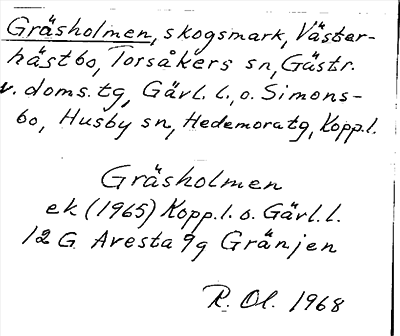 Gräsholmen, skogsmark, Väster-
hästbo, Torsåkers sn, Gästr.
v. doms.tg, Gävl. l., o. Simons-
bo, Husby sn, Hedemora tg, Kopp.l.
Gräsholmen
ek (1965) Kopp.l. o. Gävl.l.
12 G Avesta 9g Gränjen
R. Ol. 1968